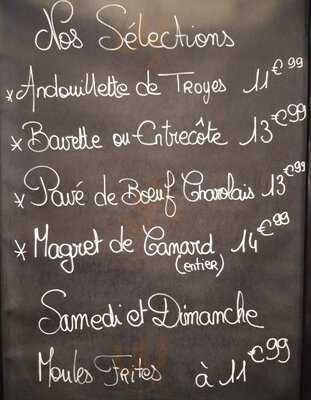 Nos Sélections
* Andouillette de Troyes 11€99
* Bavette ou Entrecôte 13€99
* Pavé de Bœuf Charolais 13€99
* Magret de Canard 14€99
(entier)
Samedi et Dimanche
Moules Frites à 11€99